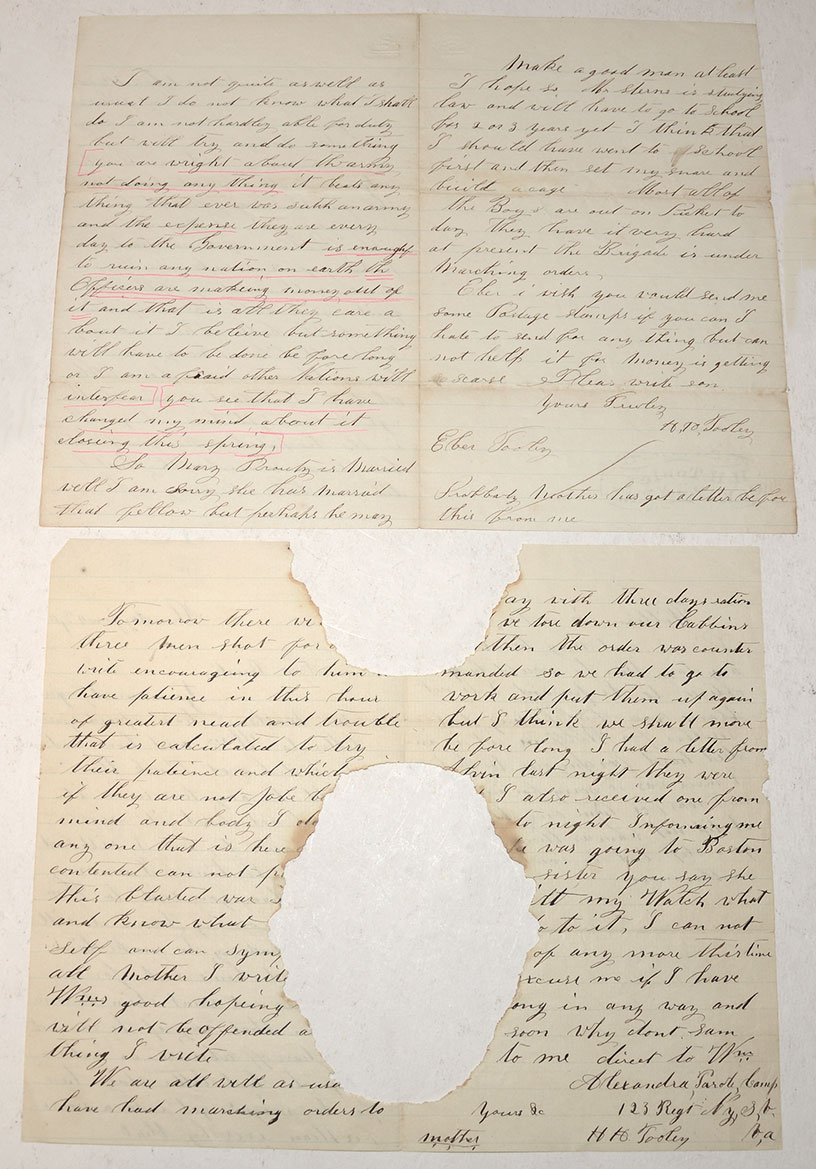 I am not quite as well as
usual I do not know what I shall
do I am not hardly able for duty
but will try and do something
you are wright about tharmy
not doing any thing it beats any
thing that ever was sutch an army
and the expense they are every
day to the Government is enough
to ruin any nation on earth th
Officers are makeing money out of
it and that is all they care a
bout it I beleive but something
will have to be done be fore long
or I am afraid other Nations will
interfear you see that I have
changed my mind about it
closing this spring,
So Mary Prouty is Married
well I am Sorry she has married
that fellow but perhaps he may
Make a good man at least
I hope so. Mr Sterns is studying
law and will have to go to school
for 2 or 3 years yet I think that
I should have went to school
first and then set my snare and
build a cage Most all of
the Boys are out on Picket to
day they have it very hard
at present the Brigade is under
Marching orders,
Eber i wish you would send me
some Postage stamps if you can I
hate to send for any thing but can
not help it for money is getting
scarse Pleas write soon
Yours Truley
H. D. Tooley
Eber Tooley
Probably Mother has got a letter be fore
this from me
Tomorrow there wi
three men shot for
write encouraging to him
have patience in this hour
of greatest nead and trouble
that is calculated to try
their patience and which
if they are not Jobe b
mind and body I do
any one that is here
contented can not
this blasted war
and know what
self and can Symp
all Mother I write
Wms good hopeing
will not be offended a
thing I write
We are all well as usu
have had marching orders to
ay with three days ration
we tore down our Cabbins
then the order was counter
manded so we had to go to
work and put them up again
but I think we shall move
be fore long I had a letter from
Alvin last night they were
I also received one from
to night Informing me
he was going to Boston
sister you say she
my Watch what
to it, I can not
of any more this time
xcuse me if I have
ong in any way and
soon why dont Sam
to me direct to Wm
Alexandra Parole Camp
Yours &c 123 Regt Ny, S, V.
mother H D Tooley Va